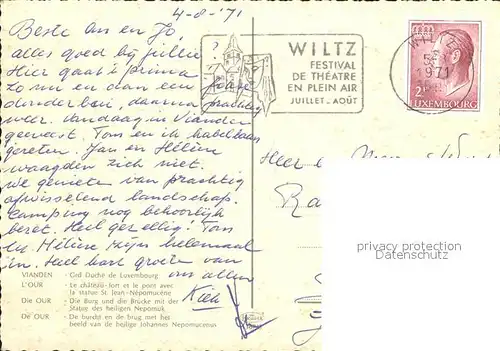 4-8-'71
Beste An en Jo,
alles goed bij jullie
Hier gaat 't prima
Zo nu en dan een
donderbui, daarna prachtig
weer. Vandaag in Vianden
geweest. Tom en ik kabelbaan
Jan en Hélène
waagden zich niet.
We genieten van prachtig
afwisselend landschap.
Camping nog behoorlijk
bezet. Heel gezellig! Tom
en Hélène zijn helemaal
in. Heel hart. groeten van
ons allen
WILTZ
FESTIVAL
DE THÉATRE
EN PLEIN AIR
JUILLET-AOÛT
WILTZ
1971
2F
LUXEMBOURG
privacy protection
Datenschutz
VIANDEN - Grd Duché de Luxembourg
L'OUR - Le château-fort et le pont avec
la statue St. Jean-Népomucène
Die OUR - Die Burg und die Brücke mit der
Statue des heiligen Nepomuk
De OUR - De burcht en de brug met het
beeld van de heilige Johannes Nepomucenus